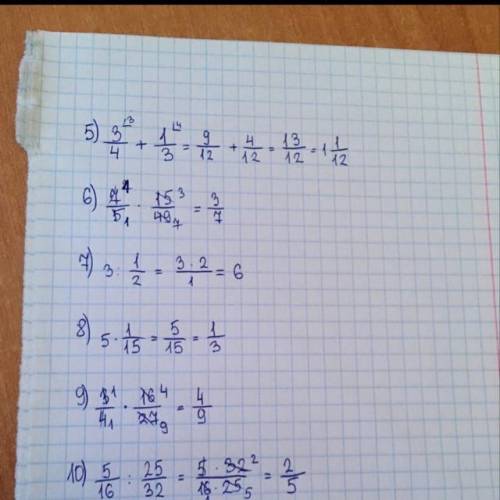 5) 3^{⌊3}/4 + 1^{⌊4}/3 = 9/12 + 4/12 = 13/12 = 1 1/12
6) 7^1/5_1 · 15^3/49_7 = 3/7
7) 3 : 1/2 = 3·2/1 = 6
8) 5 · 1/15 = 5/15 = 1/3
9) 3^1/4_1 · 16^4/27_9 = 4/9
10) 5/16 : 25/32 = 5·32^2/16_1·25_5 = 2/5